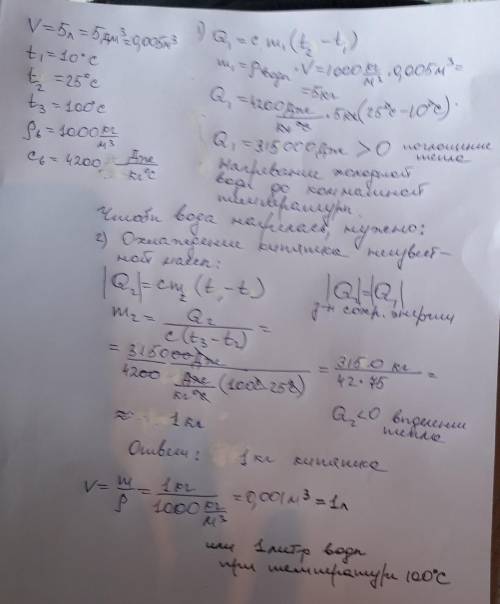 V=5л=5дм³=0,005м³
t₁=10°C
t₂=25°C
t₃=100°C
ρв=1000 кг/м³
cв=4200 Дж/кг°C
1) Q₁=cm₁(t₂-t₁)
m₁=ρводы·V=1000 кг/м³·0,005м³=
=5кг
Q₁=4200 Дж/кг°C·5кг(25°C-10°C)
Q₁=315000Дж>0 поглощение
тепла
Нагревание холодной
воды до комнатной
температуры.
Чтобы вода нагрелась, нужно:
2) Охлаждение кипятка неизвест-
ной массы:
|Q₂|=cm₂(t₃-t₂)
|Q₂|=|Q₁|
з-н сохр. энергии
m₂=Q₂/c(t₃-t₂)=
=315000Дж/4200 Дж/кг°C(100-25°C)=3150 кг/42·75=
≈1кг
Q₂<0 выделение
тепла
Ответ: 1кг кипятка
V=m/ρ=1кг/1000 кг/м³=0,001м³=1л
или 1 литр воды
при температуре 100°C